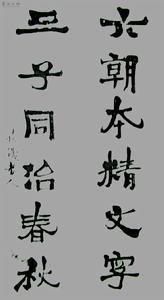 六朝本精文字
三子同治春秋